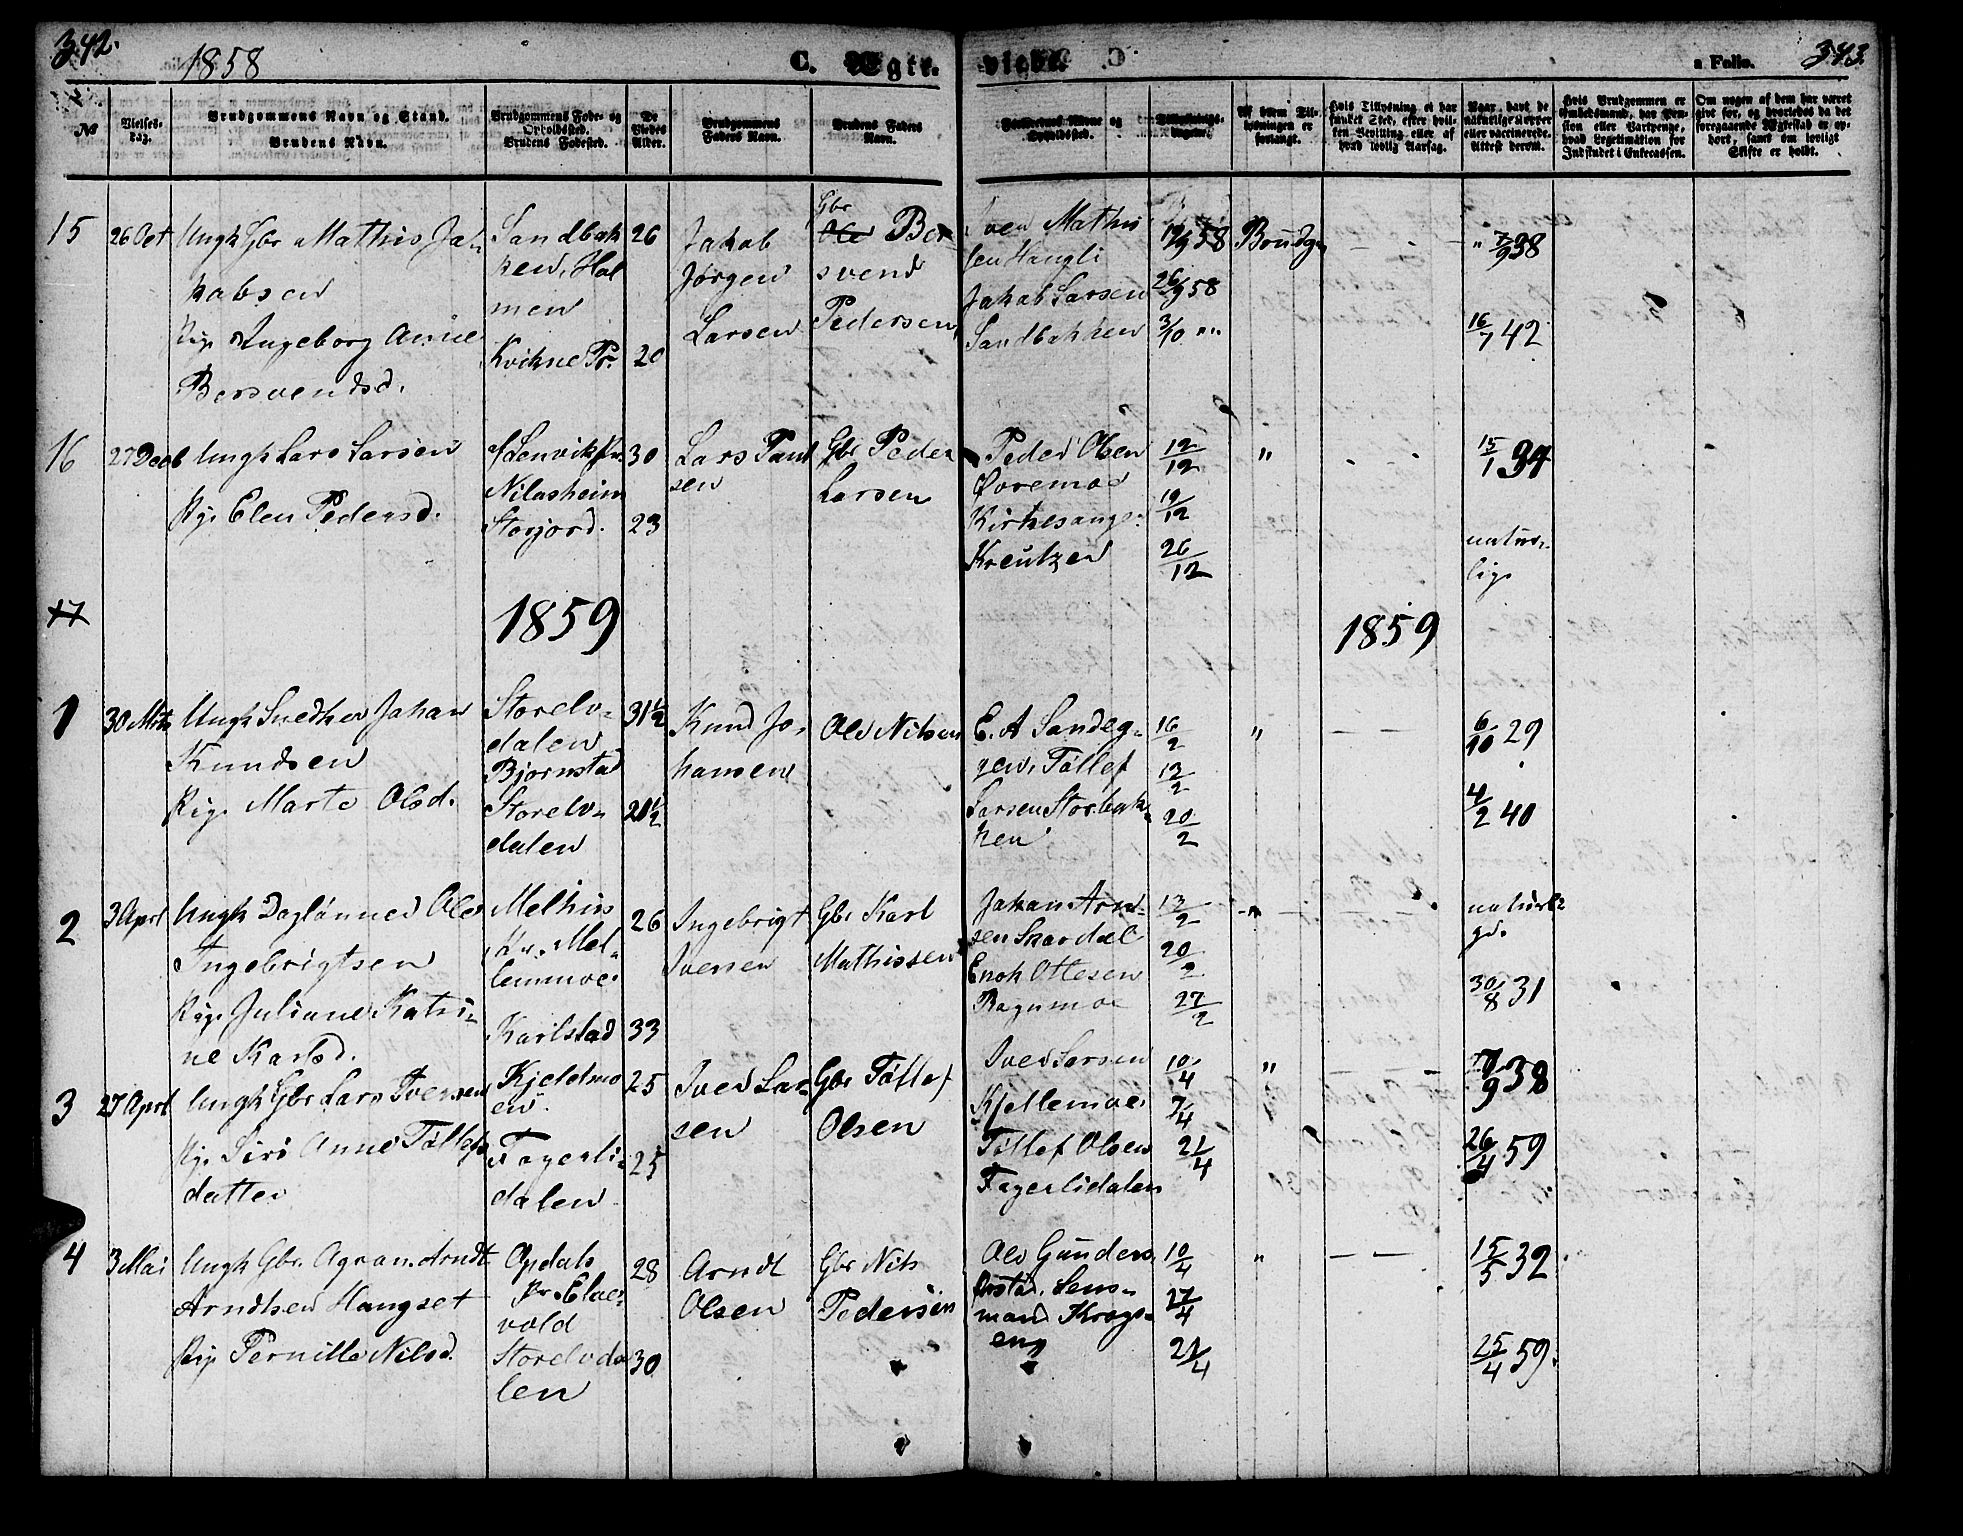 342.
1858
C. Egte-
viede.
a Folio.
343.
№
Vielses-
Dag.
Brudgommens Navn og Stand.
Brudens Navn.
Brudgommens Føde- og
Opholdssted.
Brudens Fødested.
De
Viedes
Alder.
Brudgommens
Faders Navn.
Brudens Faders
Navn.
Forlovernes Navne og
Opholdssted.
Tillysnings-
dagene.
Af hvem Til-
lysningen er
forlangt.
Hvis Tillysning ei har
fundet Sted, efter hvil-
ken Bevilling eller af
hvad lovlig Aarsag.
Naar havt de
naturlige Kopper
eller vaccinerede.
Attest derom.
Hvis Brudgommen er
Embedsmand, har Pen-
sion eller Vartpenge,
hvad Legitimation for
Indskudet i Enkecassen.
Om nogen af dem har været
gift før, og hvorledes da det
foregaaende Ægteskab er op-
hørt, samt om lovligt
Skifte er holdt.
15
26 Oct
Ungk Gbr Mathis Ja-
kobsen
Pig. Ingeborg Anne
Bersvendsd.
Sandbak
ken, Hol
men
Kvikne Pr.
26
20
Jakob
Jørgen
Larsen
Gbr
Ole Ber
svend
Pedersen
Iver Mathis
sen Haugli
Jakob Larsen
Sandbakken
19/9 58
26/9 58
3/10 "
Brudg.
" 7/9 38
16/7 42
16
27 Decb
Ungk Lars Larsen
Pig. Elen Pedersd.
af Lenvik Pr.
Nilasheim
Storjord.
30
23
Lars Paul
sen
Gbr Peder
Larsen
Peder Olsen
Øvremoe
Kirkesang.
Kreutzer
12/12
19/12
26/12
"
15/1 34
natur-
lig.
17
1859
1859
1
30 Mrts
Ungk Snedker Johan
Knudsen
Pig. Marte Olsd.
Storelv-
dalen
Bjørnstad
Storelv-
dalen
31½
21½
Knud Jo-
hansen
Ole Nilsen
E. A Sandeg-
gen, Tøllef
Larsen Storbak-
ken
16/2
13/2
20/2
"
6/10 29
4/2 40
2
3 Aprl
Ungk Daglønner Ole
Ingebrigtsen
Pig. Juliane Katri-
ne Karlsd.
Melhus
Pr. Mel-
lemmoe
Karlstad
26
33
Ingebrigt
Iversen
Gbr Karl
Mathissen
Johan Arnt-
sen Skardal
Enok Ottesen
Bagnmoe
13/2
20/2
27/2
"
naturli
ge.
30/8 31
3
27 Aprl
Ungk Gbr Lars Iversen
Pig. Siri Anne Tøllefs
datter
Kjeldmo
en
Fagerli-
dalen
25
25
Iver Lar-
sen
Gbr Tøllef
Olsen
Iver Larsen
Kjellemoe
Tøllef Olsen
Fagerlidalen
10/4
7/4
21/4
"
7/9 38
26/4 59
4
3 Mai
Ungk Gbr. Agvan. Arndt
Arndtsen Haugset
Pig. Pernille Nilsd.
Opdals
Pr. Elve-
vold
Storelvda
len
28
30
Arndt
Olsen
Gbr Nils
Pedersen
Ole Gunders.
Ørstad, Lens-
mand Krogs-
eng
10/4
17/4
21/4
"
15/5 32
25/4 59.